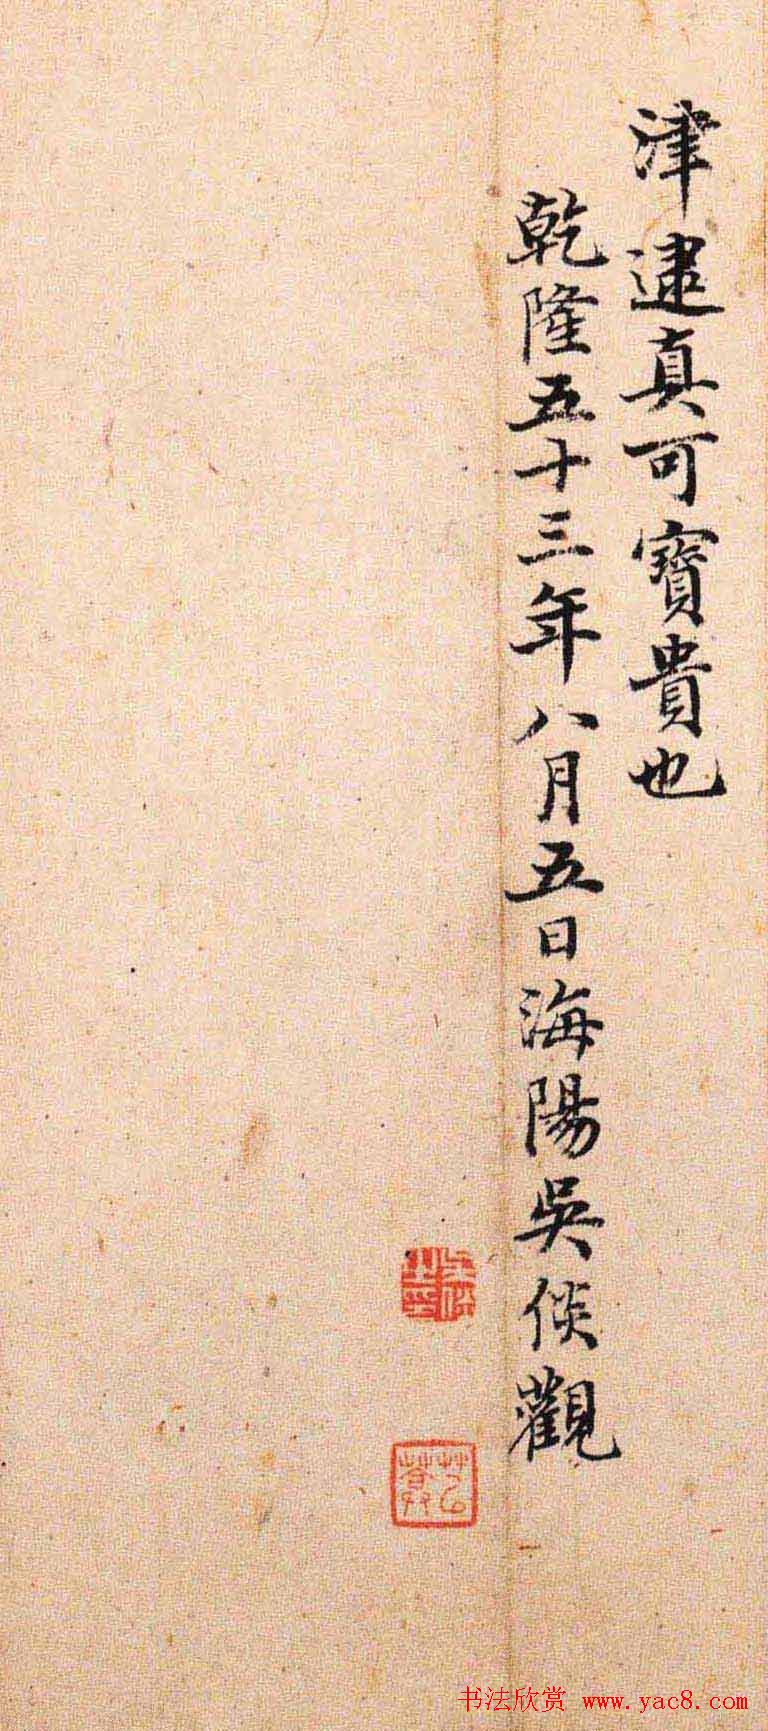 津逮真可寶貴也
乾隆五十三年八月五日海陽吳倓觀
书法欣赏 www.yac8.com